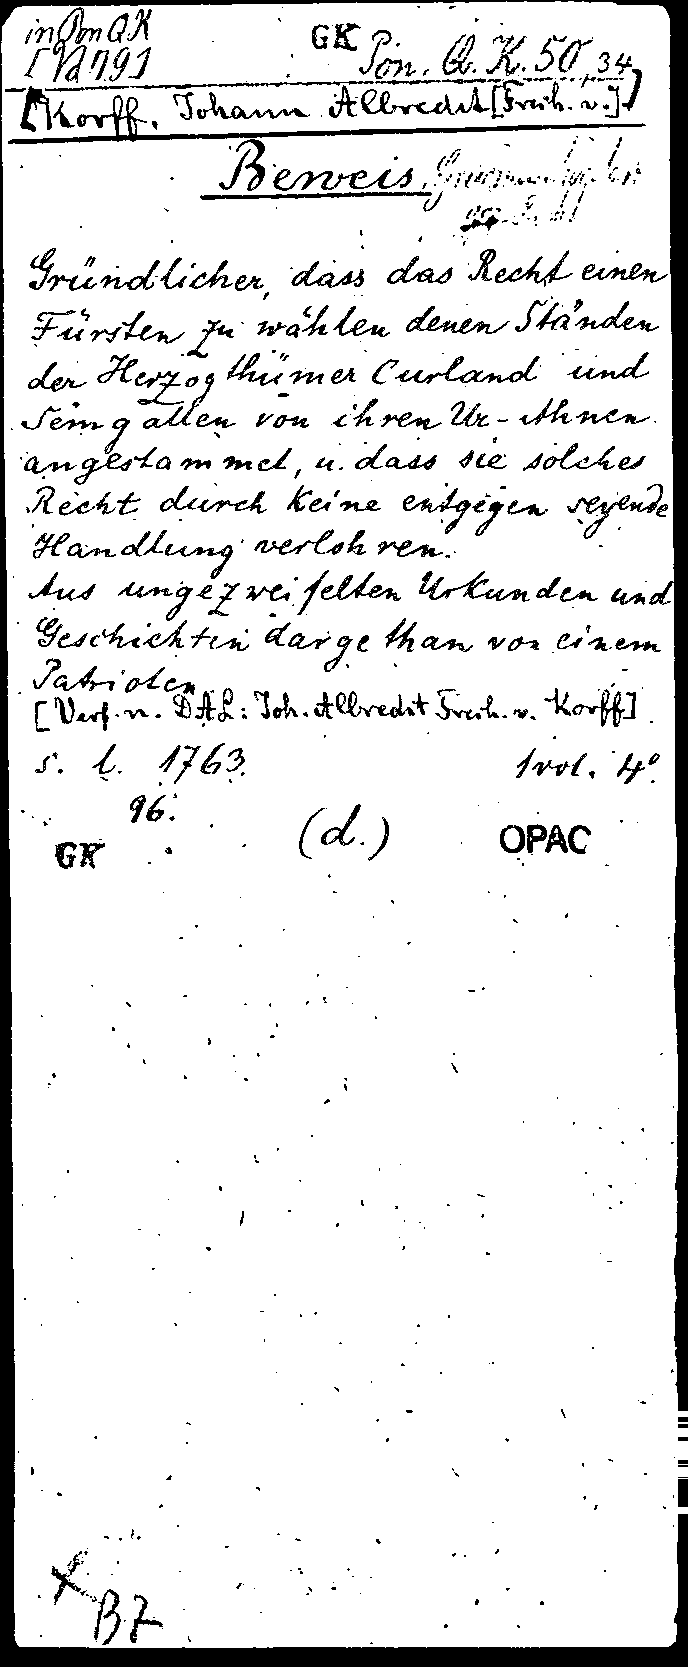 in Pon Q.K
[Vd 79]
GK
Pon. Q. K. 50,34
[Korff, Johann Albrecht [Freih. v.]]
Beweis,
Gründlicher, dass das Recht einen
Fürsten zu wählen denen Ständen
der Herzogthümer Curland und
Semgallen von ihren Ur-Ahnen
angestammet, u. dass sie solches
Recht durch keine entgegen seyende
Handlung verlohren.
Aus ungezweifelten Urkunden und
Geschichten dargethan von einem
Patrioten.
[Verf. n. DAL: Joh. Albrecht Freih. v. Korff]
s. l. 1763. 1 vol. 4°.
96.
GK (d.) OPAC
B7